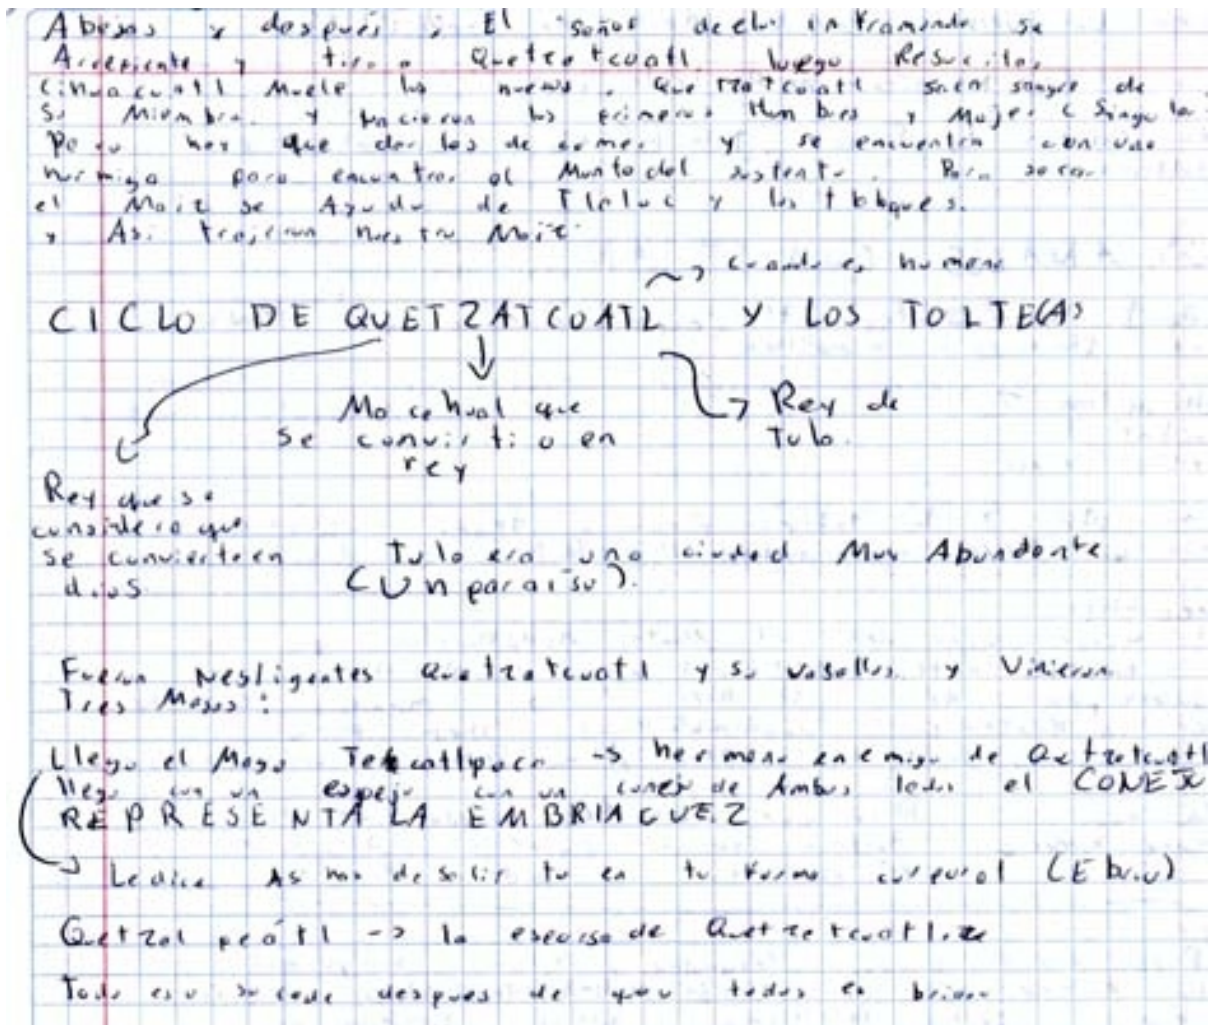 Abejas y después, El señor del inframundo se
Arrepiente y tira a Quetzatcoatl luego Resucita,
Cihuacuatl Muele los huesos, Quetzatcoatl saca sangre de
su Miembro y nacieron los primeros Hombres y Mujer (Singular
Pero hay que darles de comer y se encuentra con una
hormiga para encontrar el Monte del sustento. Para sacar
el Maiz se Ayuda de Tlaluc y los tlaloques.
y Asi trajeron nuestro Maiz.
cuando es humano
CICLO DE QUETZATCOATL Y LOS TOLTECAS
Macehual que
se convirtio en
rey
Rey de
Tula.
Rey que se
considera que
se convierte en
dios
Tula era una ciudad Muy Abundante
(Un paraiso).
Fueron Negligentes Quetzatcoatl y su vasallos y Vinieron
Tres Magos:
Llego el Mago Tezcatlipoca -> hermano enemigo de Quetzatcoatl
llego con un espejo con un conejo de Ambos lados el CONEJO
REPRESENTA LA EMBRIAGUEZ
Le dice As de salir tu en tu forma corporal (Ebrio)
Quetzal peótl -> la esposa de Quetzatcoatl.
Todo eso sucede despues de que todos